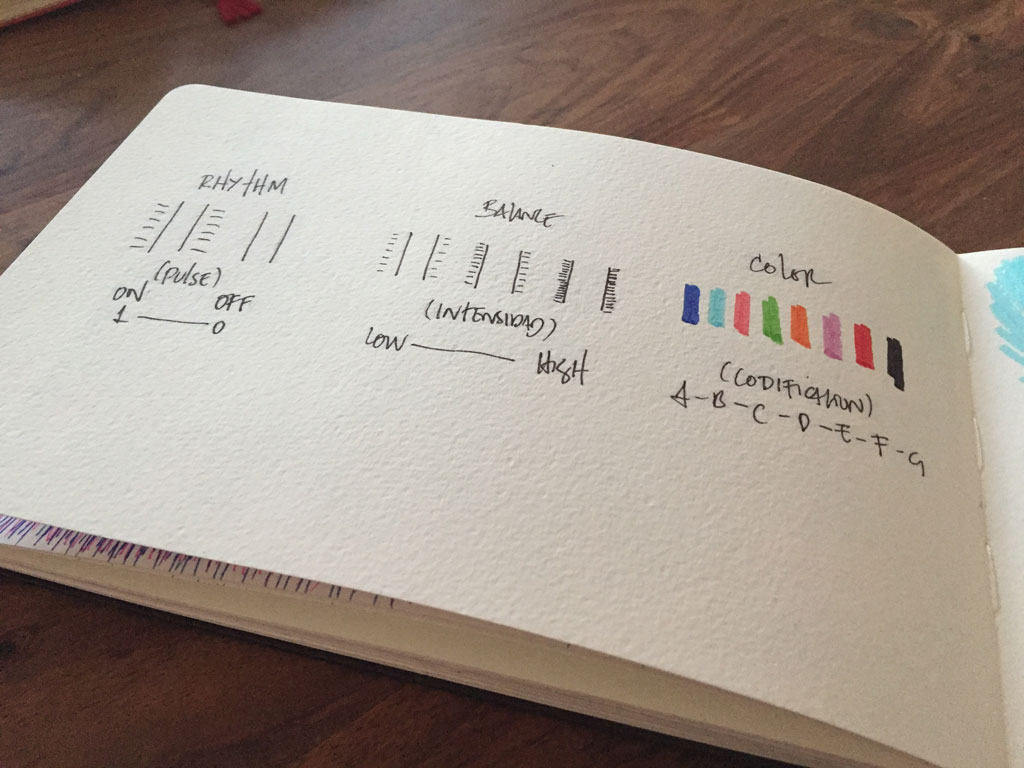 RHYTHM
(PULSE)
ON OFF
1 — 0
BALANCE
(INTENSIDAD)
LOW — HIGH
COLOR
(CODIFICATION)
A - B - C - D - E - F - G